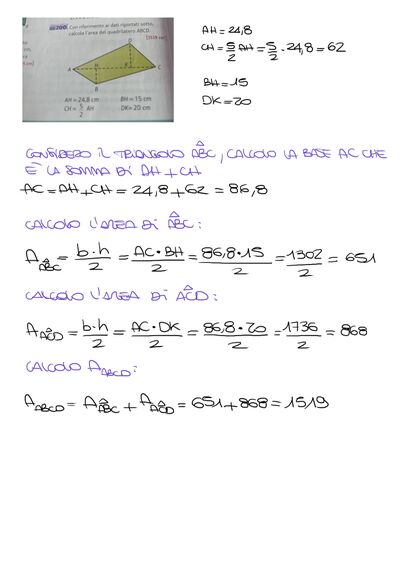 200. Con riferimento ai dati riportati sotto,
calcola l'area del quadrilatero ABCD.
[1519 cm²]
D
A H K C
B
AH = 24,8 cm BH = 15 cm
CH = 5/2 AH DK = 20 cm
AH = 24,8
CH = 5/2 AH = 5/2 · 24,8 = 62
BH = 15
DK = 20
CONSIDERO IL TRIANGOLO AB̂C, CALCOLO LA BASE AC CHE
È LA SOMMA DI AH + CH
AC = AH + CH = 24,8 + 62 = 86,8
CALCOLO L'AREA DI AB̂C:
A AB̂C = b·h/2 = AC·BH/2 = 86,8·15/2 = 1302/2 = 651
CALCOLO L'AREA DI AĈD:
A AĈD = b·h/2 = AC·DK/2 = 86,8·20/2 = 1736/2 = 868
CALCOLO A ABCD:
A ABCD = A AB̂C + A AĈD = 651 + 868 = 1519